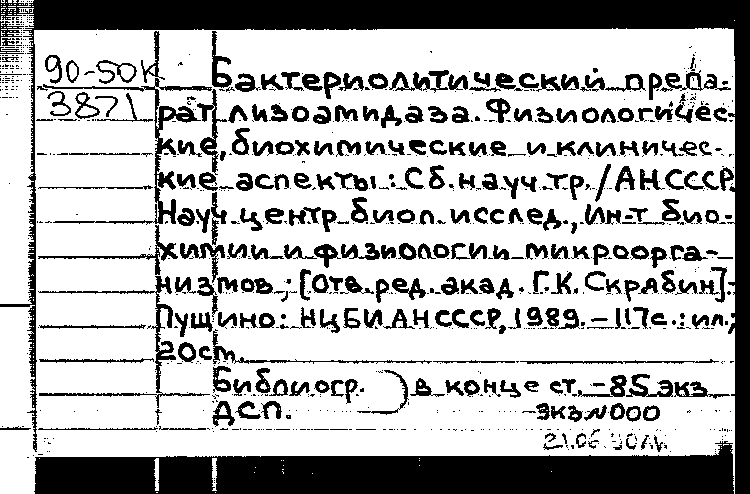 90-50К Бактериолитический препа-
3871 рат лизоамидаза. Физиологичес-
кие, биохимические и клиничес-
кие аспекты: Сб. науч. тр. / АН СССР,
Науч. центр биол. исслед., Ин-т био-
химии и физиологии микроорга-
низмов ; [Отв. ред. акад. Г.К. Скрябин].-
Пущино: НЦБИ АН СССР, 1989. - 117с.: ил.;
20см.
Библиогр. в конце ст. - 85 экз
ДСП. экз N 000
21.06.90